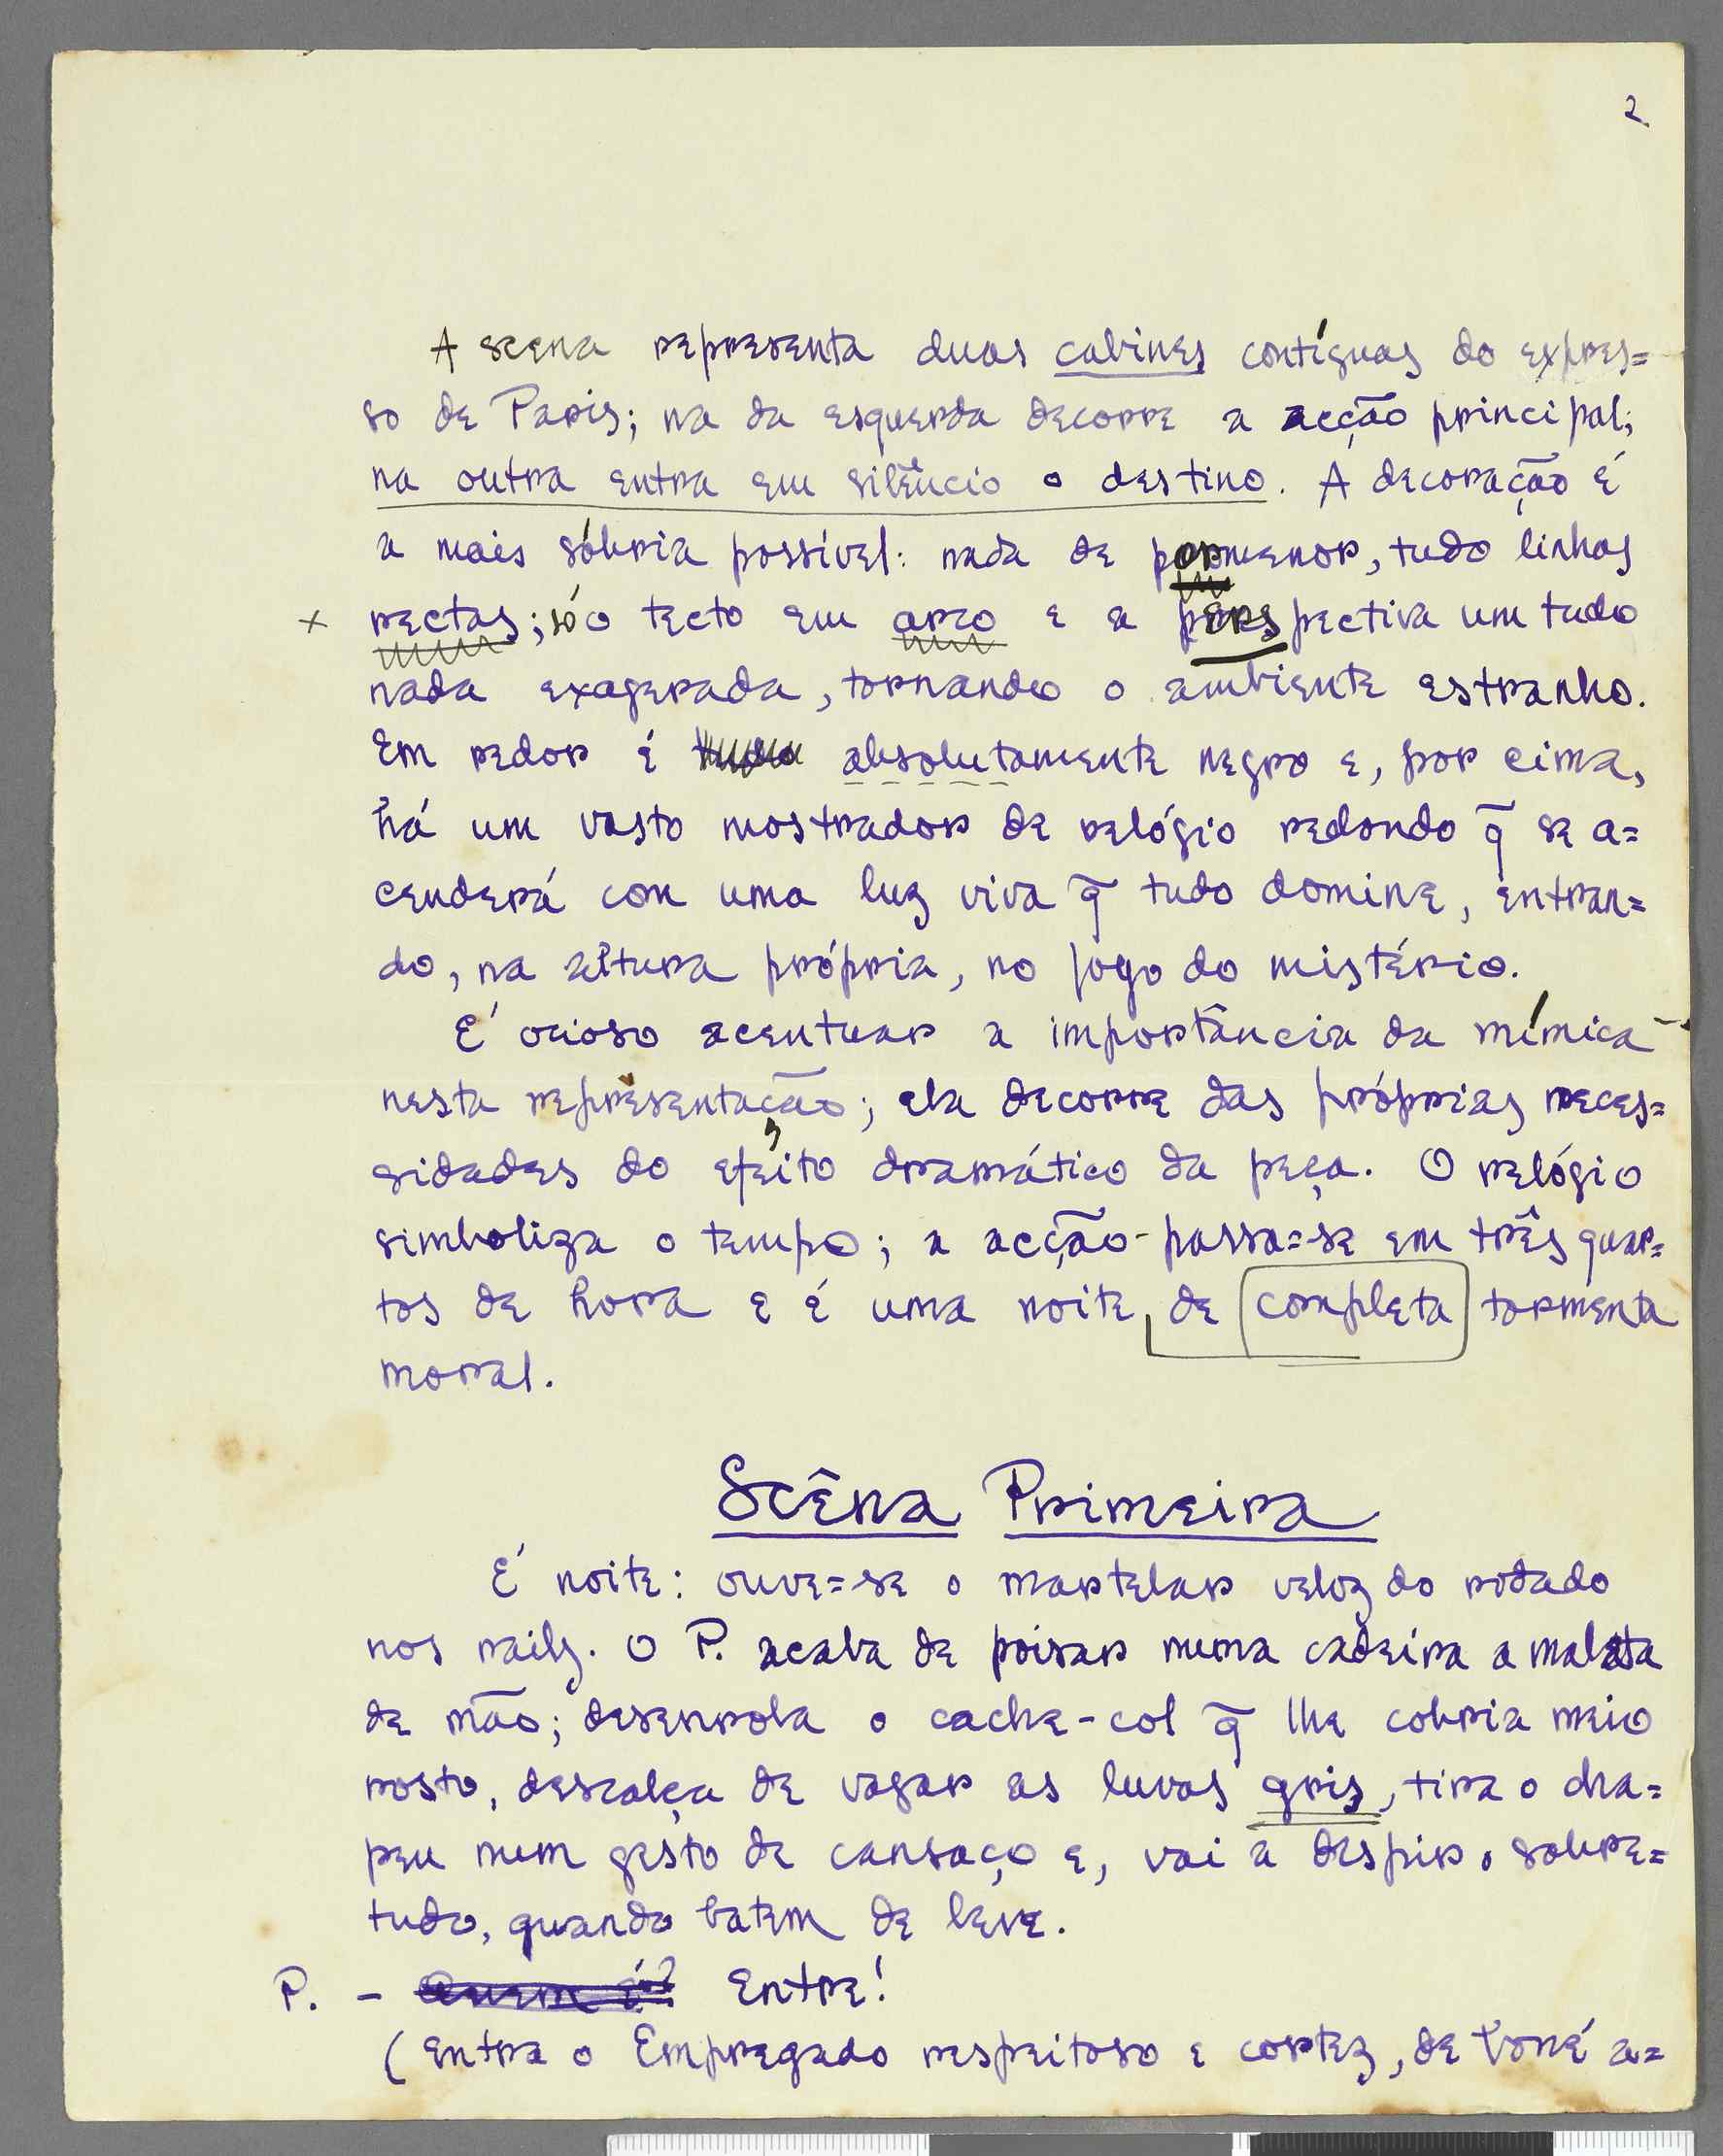 2
A scena representa duas cabines contíguas do expres=
so de Paris; na da esquerda decorre a acção principal;
na outra entra em silêncio o destino. A decoração é
a mais sóbria possível: nada de pormenor, tudo linhas
x rectas; só o tecto em arco e a perspectiva um tudo
nada exagerada, tornando o ambiente estranho.
Em redor é tudo absolutamente negro e, por cima,
há um vasto mostrador de relógio redondo q̃ se a=
cenderá com uma luz viva q̃ tudo domine, entran=
do, na altura própria, no jogo do mistério.
É ocioso acentuar a importância da mímica
nesta representação; ela decorre das próprias neces=
sidades do efeito dramático da peça. O relógio
simboliza o tempo; a acção passa=se em três quar=
tos de hora e é uma noite de completa tormenta
moral.
Scêna Primeira
É noite: ouve=se o martelar veloz do rodado
nos rails. O P. acaba de poisar numa cadeira a maleta
de mão; desenrola o cache-col q̃ lhe cobria meio
rosto, descalça de vagar as luvas gris, tira o cha=
peu num gesto de cansaço e, vai a despir o sobre=
tudo, quando batem de leve.
P. - Quem é? Entre!
(Entra o Empregado respeitoso e cortez, de boné a=